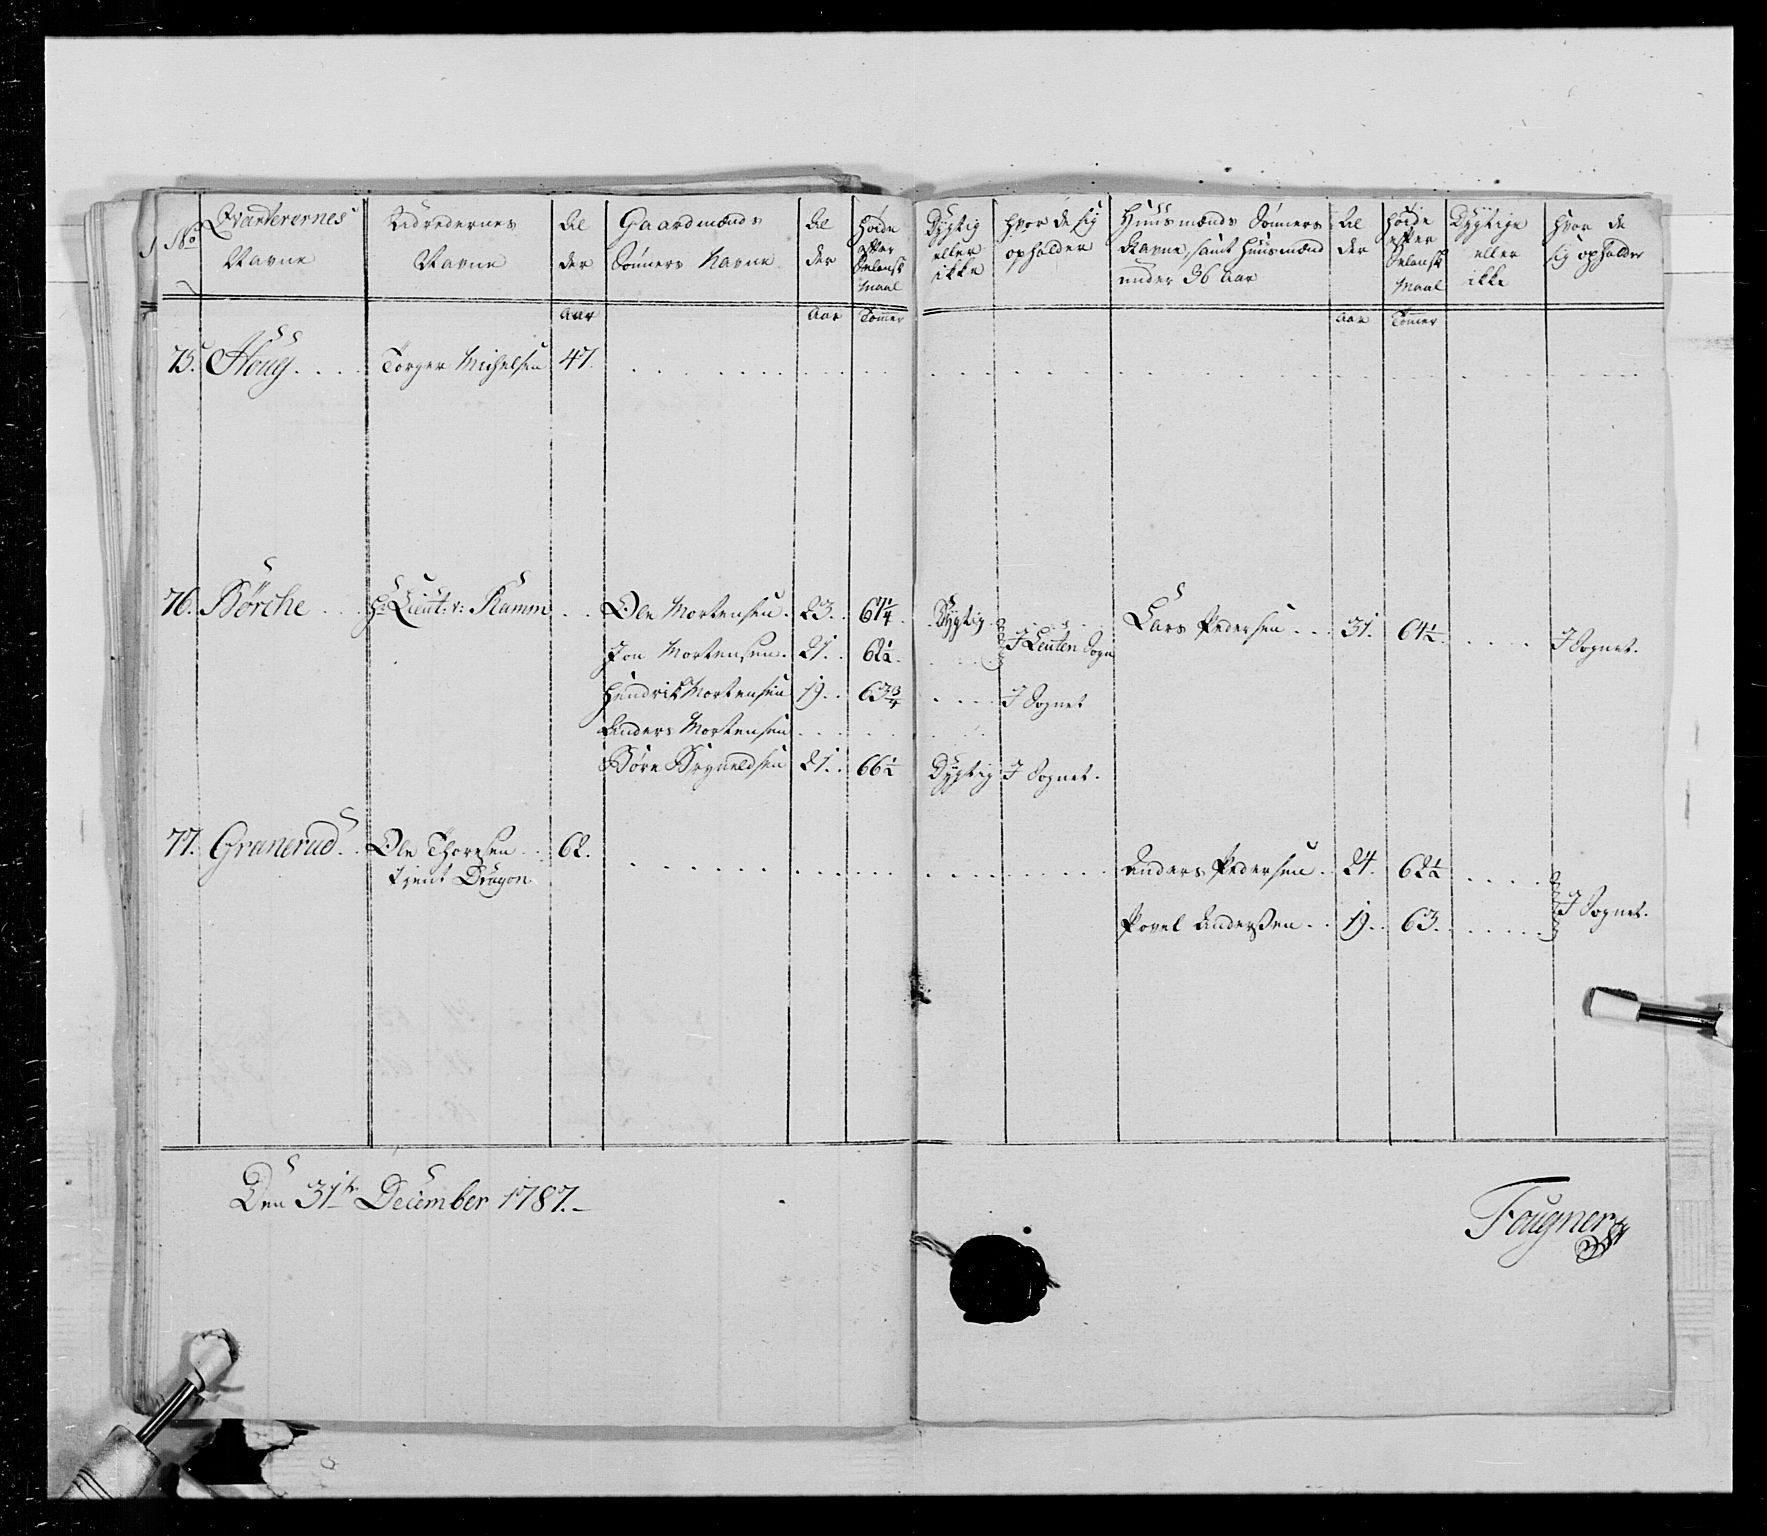 No
Qvarterernes Navne
Udredernes Navne
Alder
Gaardmænds Sönners Navne
Alder
Höide efter Selansk Maal
Dygtig eller ikke
Hvor de sig opholder
Huusmænds Sönners Navne, samt Huusmænd under 36 Aar
Alder
Höide efter Selansk Maal
Dygtige eller ikke
Hvor de sig opholder
Aar Aar Tommer Aar Tommer
75. Houg. Torger Michelsen 47.
76. Börche Hr Lieut: v: Ramm Ole Mortensen. 23. 67 1/4. Dygtig. Lars Pedersen 31. 64 1/2. I Sognet.
Jon Mortensen. 21. 62 1/2. I Leuten Sogn
Hendrik Mortensen 19. 63 3/4 I Sognet
Anders Mortensen
Böre Bryneldsen 21. 66 1/2 Dygtig I Sognet.
77. Granerud. Ole Thoresen 62. Anders Pedersen. 24. 62 1/2
tjent Dragon
Povel Anderssen 19. 63. I Sognet.
Den 31te December 1787.
Fougner